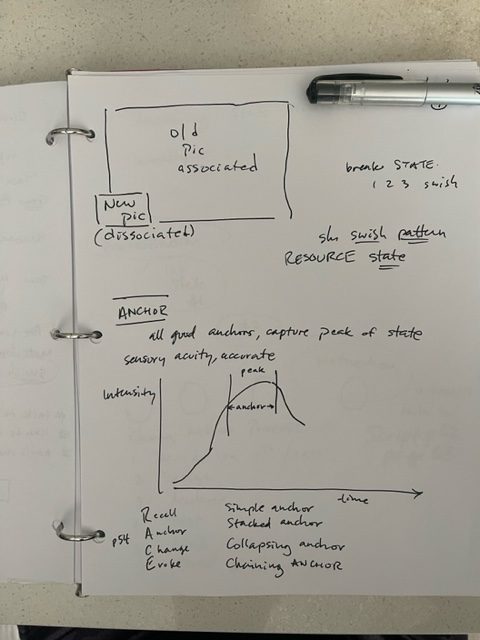 old
pic
associated
New
pic
(dissociated)
break STATE.
1 2 3 swish
swish pattern
RESOURCE state
ANCHOR
all good anchors, capture peak of state
sensory acuity, accurate
peak
Intensity
anchor
time
p54
Recall
Anchor
Change
Evoke
Simple anchor
Stacked anchor
Collapsing anchor
Chaining ANCHOR